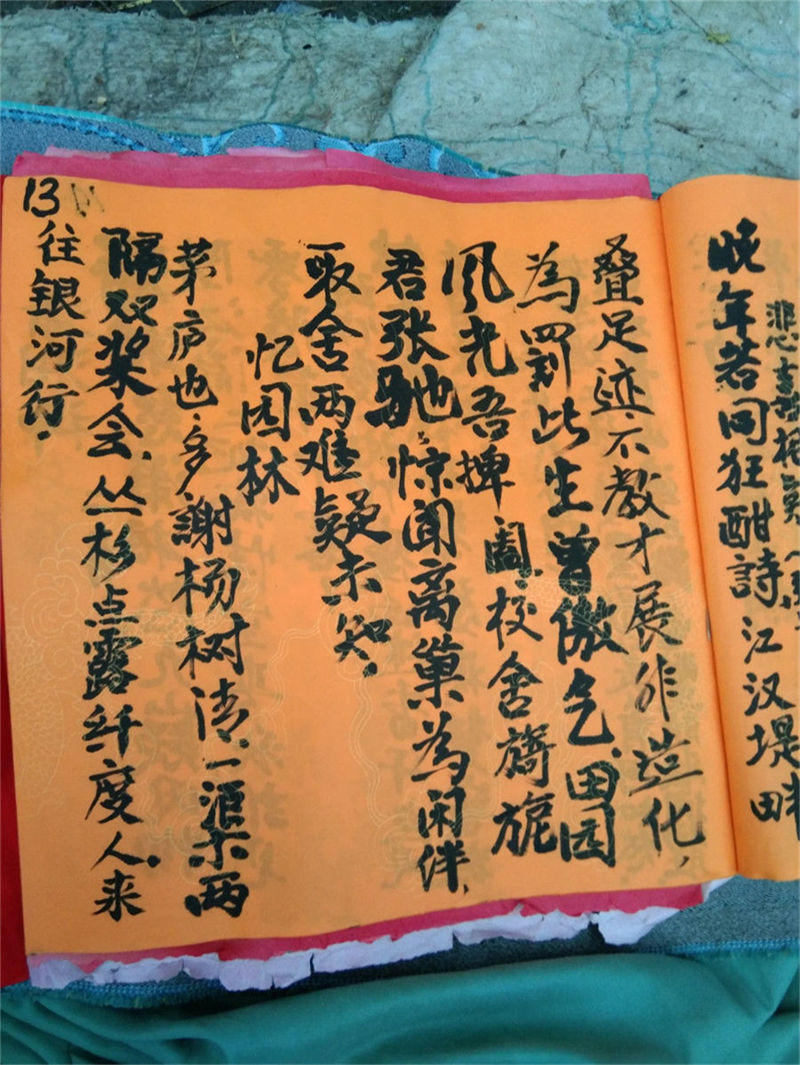 晚年若问狂酣詩,江汉堤畔
叠足迹.不教才展非造化,
為罰此生曾傲气.田园
風光吾捭阖.校舍旖旎
君张驰.惊闻离巢為闲伴,
取舍两难疑未知.
忆园林
茅庐也.多謝杨树清.一渠两
隔双桨会.丛杉点露纤度人.来
往银河行.
13